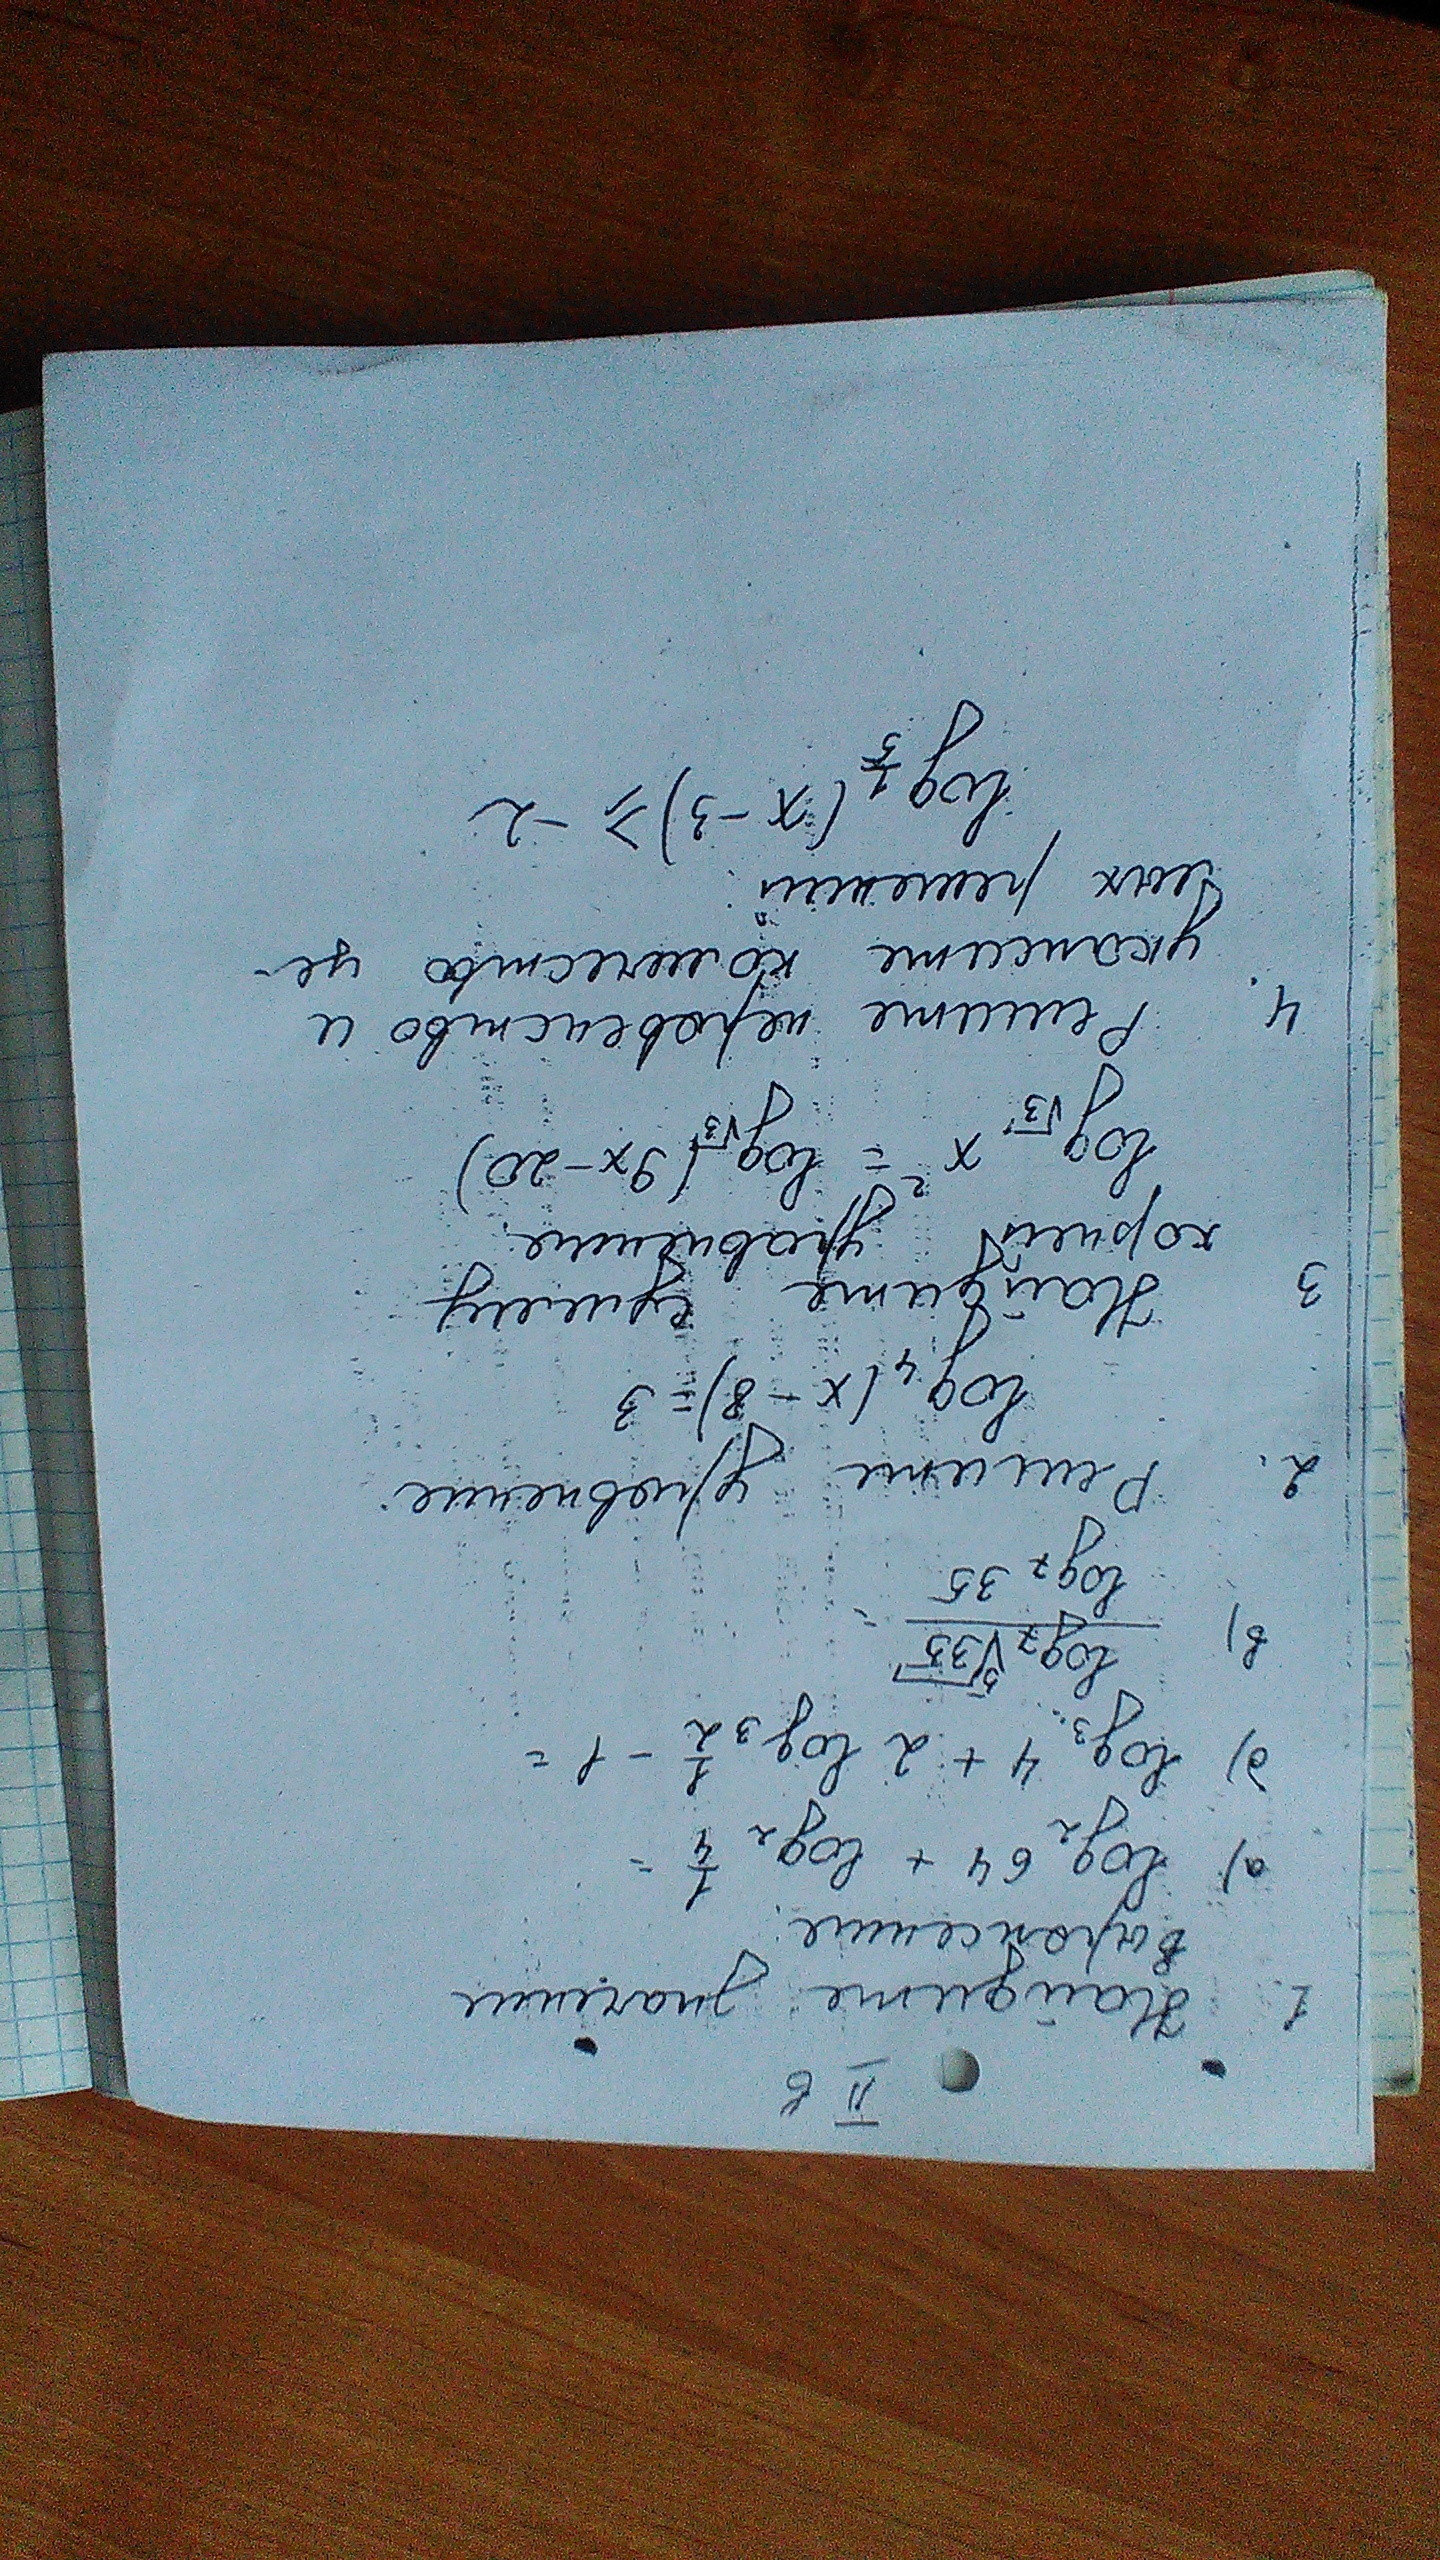 II в
1. Найдите значение
выражение:
а) log₂ 64 + log₂ 1/4 =
б) log₃ 4 + 2 log₃ 1/2 - 1 =
в) log₇ ⁵√35 / log₇ 35 =
2. Решите уравнение:
log₄ (x - 8) = 3
3 Найдите сумму
корней уравнение:
log_√3 x² = log_√3 (9x - 20)
4. Решите неравенство и
укажите количество це-
лых решений:
log_1/5 (x - 3) ⩾ -2